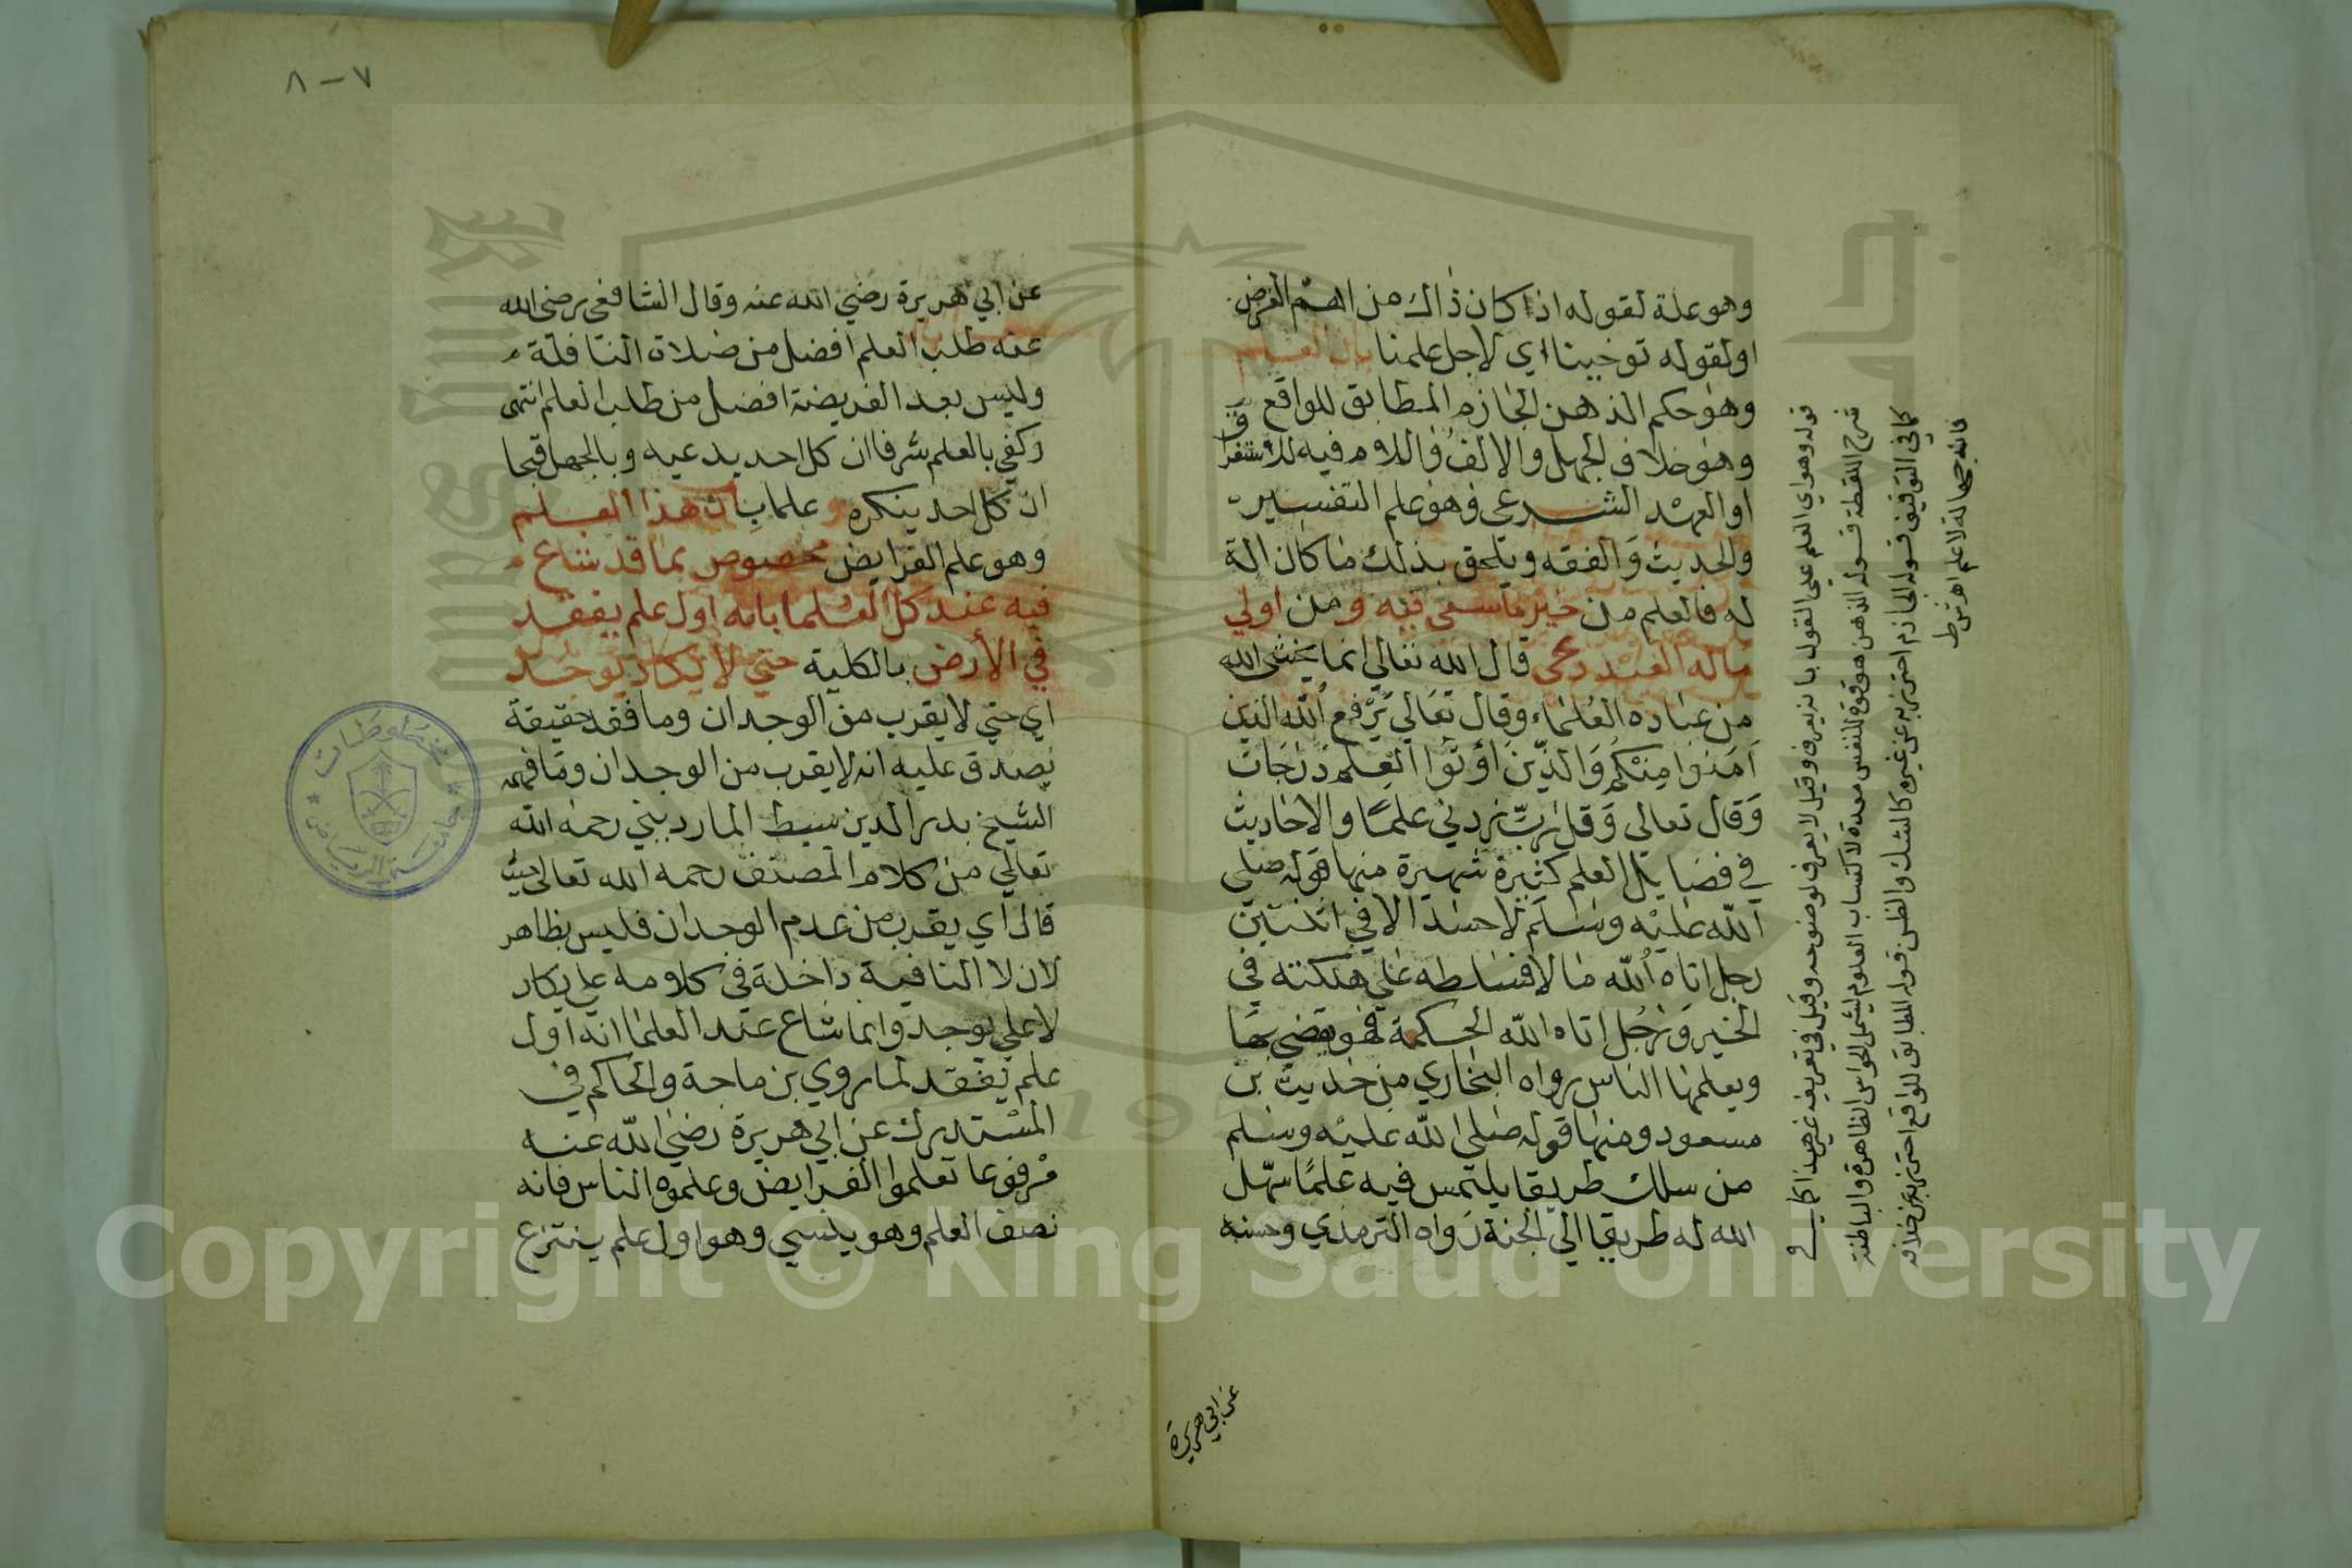 وهو علة لقوله اذا كان ذاك من اهم الغرض
او لقوله توخينا اي لاجل علمنا بان العلم
وهو حكم الذهن الجازم المطابق للواقع
وهو خلاف الجهل والالف واللام فيه للاستغراق
او العهد الشرعي وهو علم التفسير
والحديث والفقه ويلحق بذلك ما كان الة
له فالعلم من خير ما سعى فيه ومن اولي
ماله العبد دعى قال الله تعالي انما يخشى الله
من عباده العلماء وقال تعالي يرفع الله الذين
امنوا منكم والذين اوتوا العلم درجات
وقال تعالي وقل رب زدني علما والاحاديث
في فضايل العلم كثيرة شهيرة منها قوله صلي
الله عليه وسلم لا حسد الا في اثنتين
رجل اتاه الله مالا فسلطه علي هلكته في
الخير ورجل اتاه الله الحكمة فهو يقضي بها
ويعلمها الناس رواه البخاري من حديث بن
مسعود ومنها قوله صلى الله عليه وسلم
من سلك طريقا يلتمس فيه علمًا سهل
الله له طريقا الي الجنة رواه الترمذي وحسنه
عن ابي هريرة
قوله وهو اي العلم علي القول بانه يعرف وقيل لا يعرف لوضوحه وقيل في تعريفه غير هذا كما في
شرح اللقطة قوله الذهن هو قوة للنفس معدة لاكتساب العلوم يشمل الحواس الظاهرة والباطنة
كما في التوقيف قوله الجازم احترز به عن غيره كالشك والظن قوله المطابق للواقع احترز به عن خلافه
فانه جهالة لا علم اه ش ط
٧ – ٨
عن ابي هريرة رضي الله عنه وقال الشافعي رضى الله
عنه طلب العلم افضل من صلاة النافلة
وليس بعد الفريضة افضل من طلب العلم انتهى
وكفي بالعلم شرفا ان كل احد يدعيه وبالجهل قبحا
ان كل احد ينكره و علما بان هذا العلم
وهو علم الفرايض مخصوص بما قد شاع
فيه عند كل العلما بانه اول علم يفقد
في الأرض بالكلية حتي لا يكاد يوجد
اي حتي لا يقرب من الوجدان وما فقد حقيقة
يصدق عليه انه لا يقرب من الوجدان وما فهمه
الشيخ بدر الدين سبط المارديني رحمه الله
تعالي من كلام المصنف رحمه الله تعالى حيث
قال اي يقرب من عدم الوجدان فليس بظاهر
لان لا النافية داخلة في كلامه علي يكاد
لا علي يوجد وانما شاع عند العلما انه اول
علم يفقد لما روي بن ماجة والحاكم في
المستدرك عن ابي هريرة رضي الله عنه
مرفوعا تعلموا الفرايض وعلموه الناس فانه
نصف العلم وهو ينسي وهو اول علم ينتزع
مخطوطات
جامعة الرياض
1957
Copyright © King Saud University